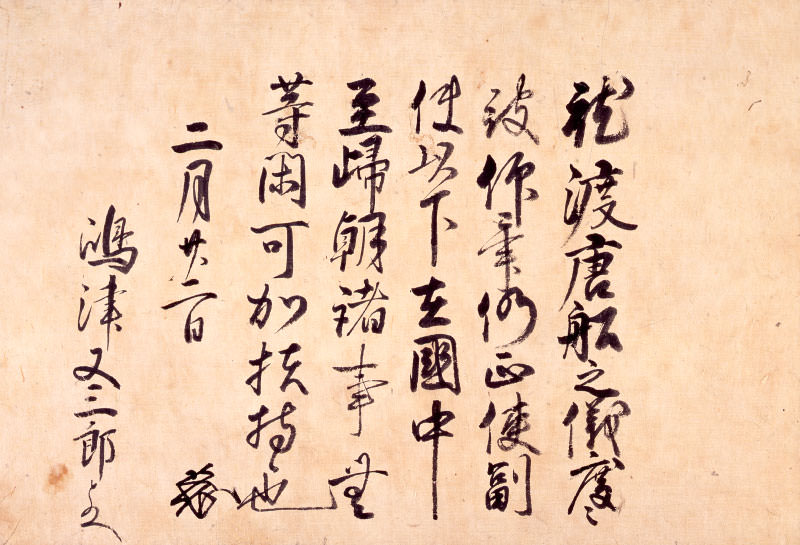 就渡唐船之儀度々
被仰事仍正使副
使以下在國中
至歸朝諸事無
等閑可加扶持也
二月廿二日
嶋津又三郎とのへ